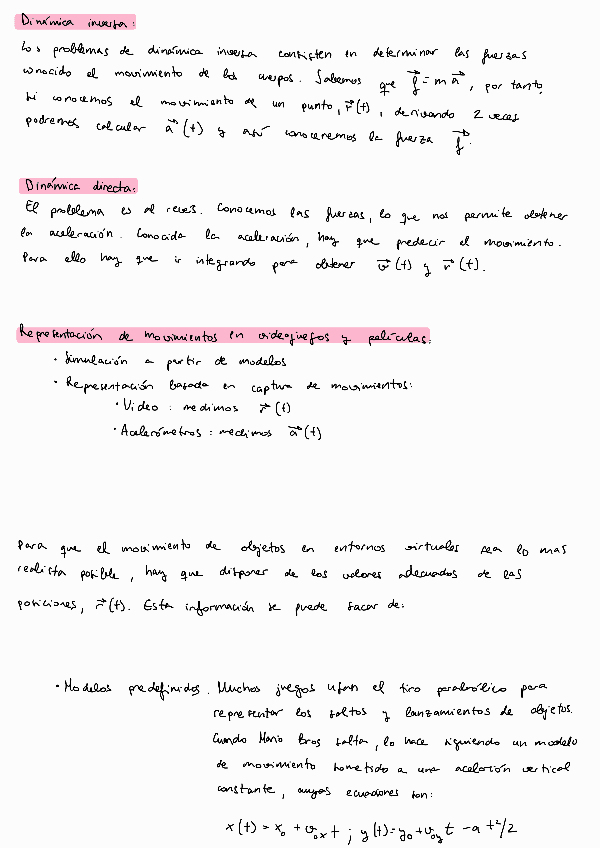 Dinámica inversa:
Los problemas de dinámica inversa consisten en determinar las fuerzas
conocido el movimiento de los cuerpos. Sabemos que f⃗ = m a⃗, por tanto,
si conocemos el movimiento de un punto, r⃗(t), derivando 2 veces
podremos calcular a⃗(t) y así conoceremos la fuerza f⃗.
Dinámica directa:
El problema es al revés. Conocemos las fuerzas, lo que nos permite obtener
la aceleración. Conocida la aceleración, hay que predecir el movimiento.
Para ello hay que ir integrando para obtener v⃗(t) y r⃗(t).
Representación de movimientos en videojuegos y películas:
· Simulación a partir de modelos
· Representación basada en captura de movimientos:
· Video: medimos r⃗(t)
· Acelerómetros: medimos a⃗(t)
Para que el movimiento de objetos en entornos virtuales sea lo mas
realista posible, hay que disponer de los valores adecuados de las
posiciones, r⃗(t). Esta información se puede sacar de:
· Modelos predefinidos. Muchos juegos usan el tiro parabólico para
representar los saltos y lanzamientos de objetos.
Cuando Mario Bros salta, lo hace siguiendo un modelo
de movimiento sometido a una aceleración vertical
constante, cuyas ecuaciones son:
x(t) = x₀ + v₀ₓ t ; y(t) = y₀ + v₀y t - a t²/2